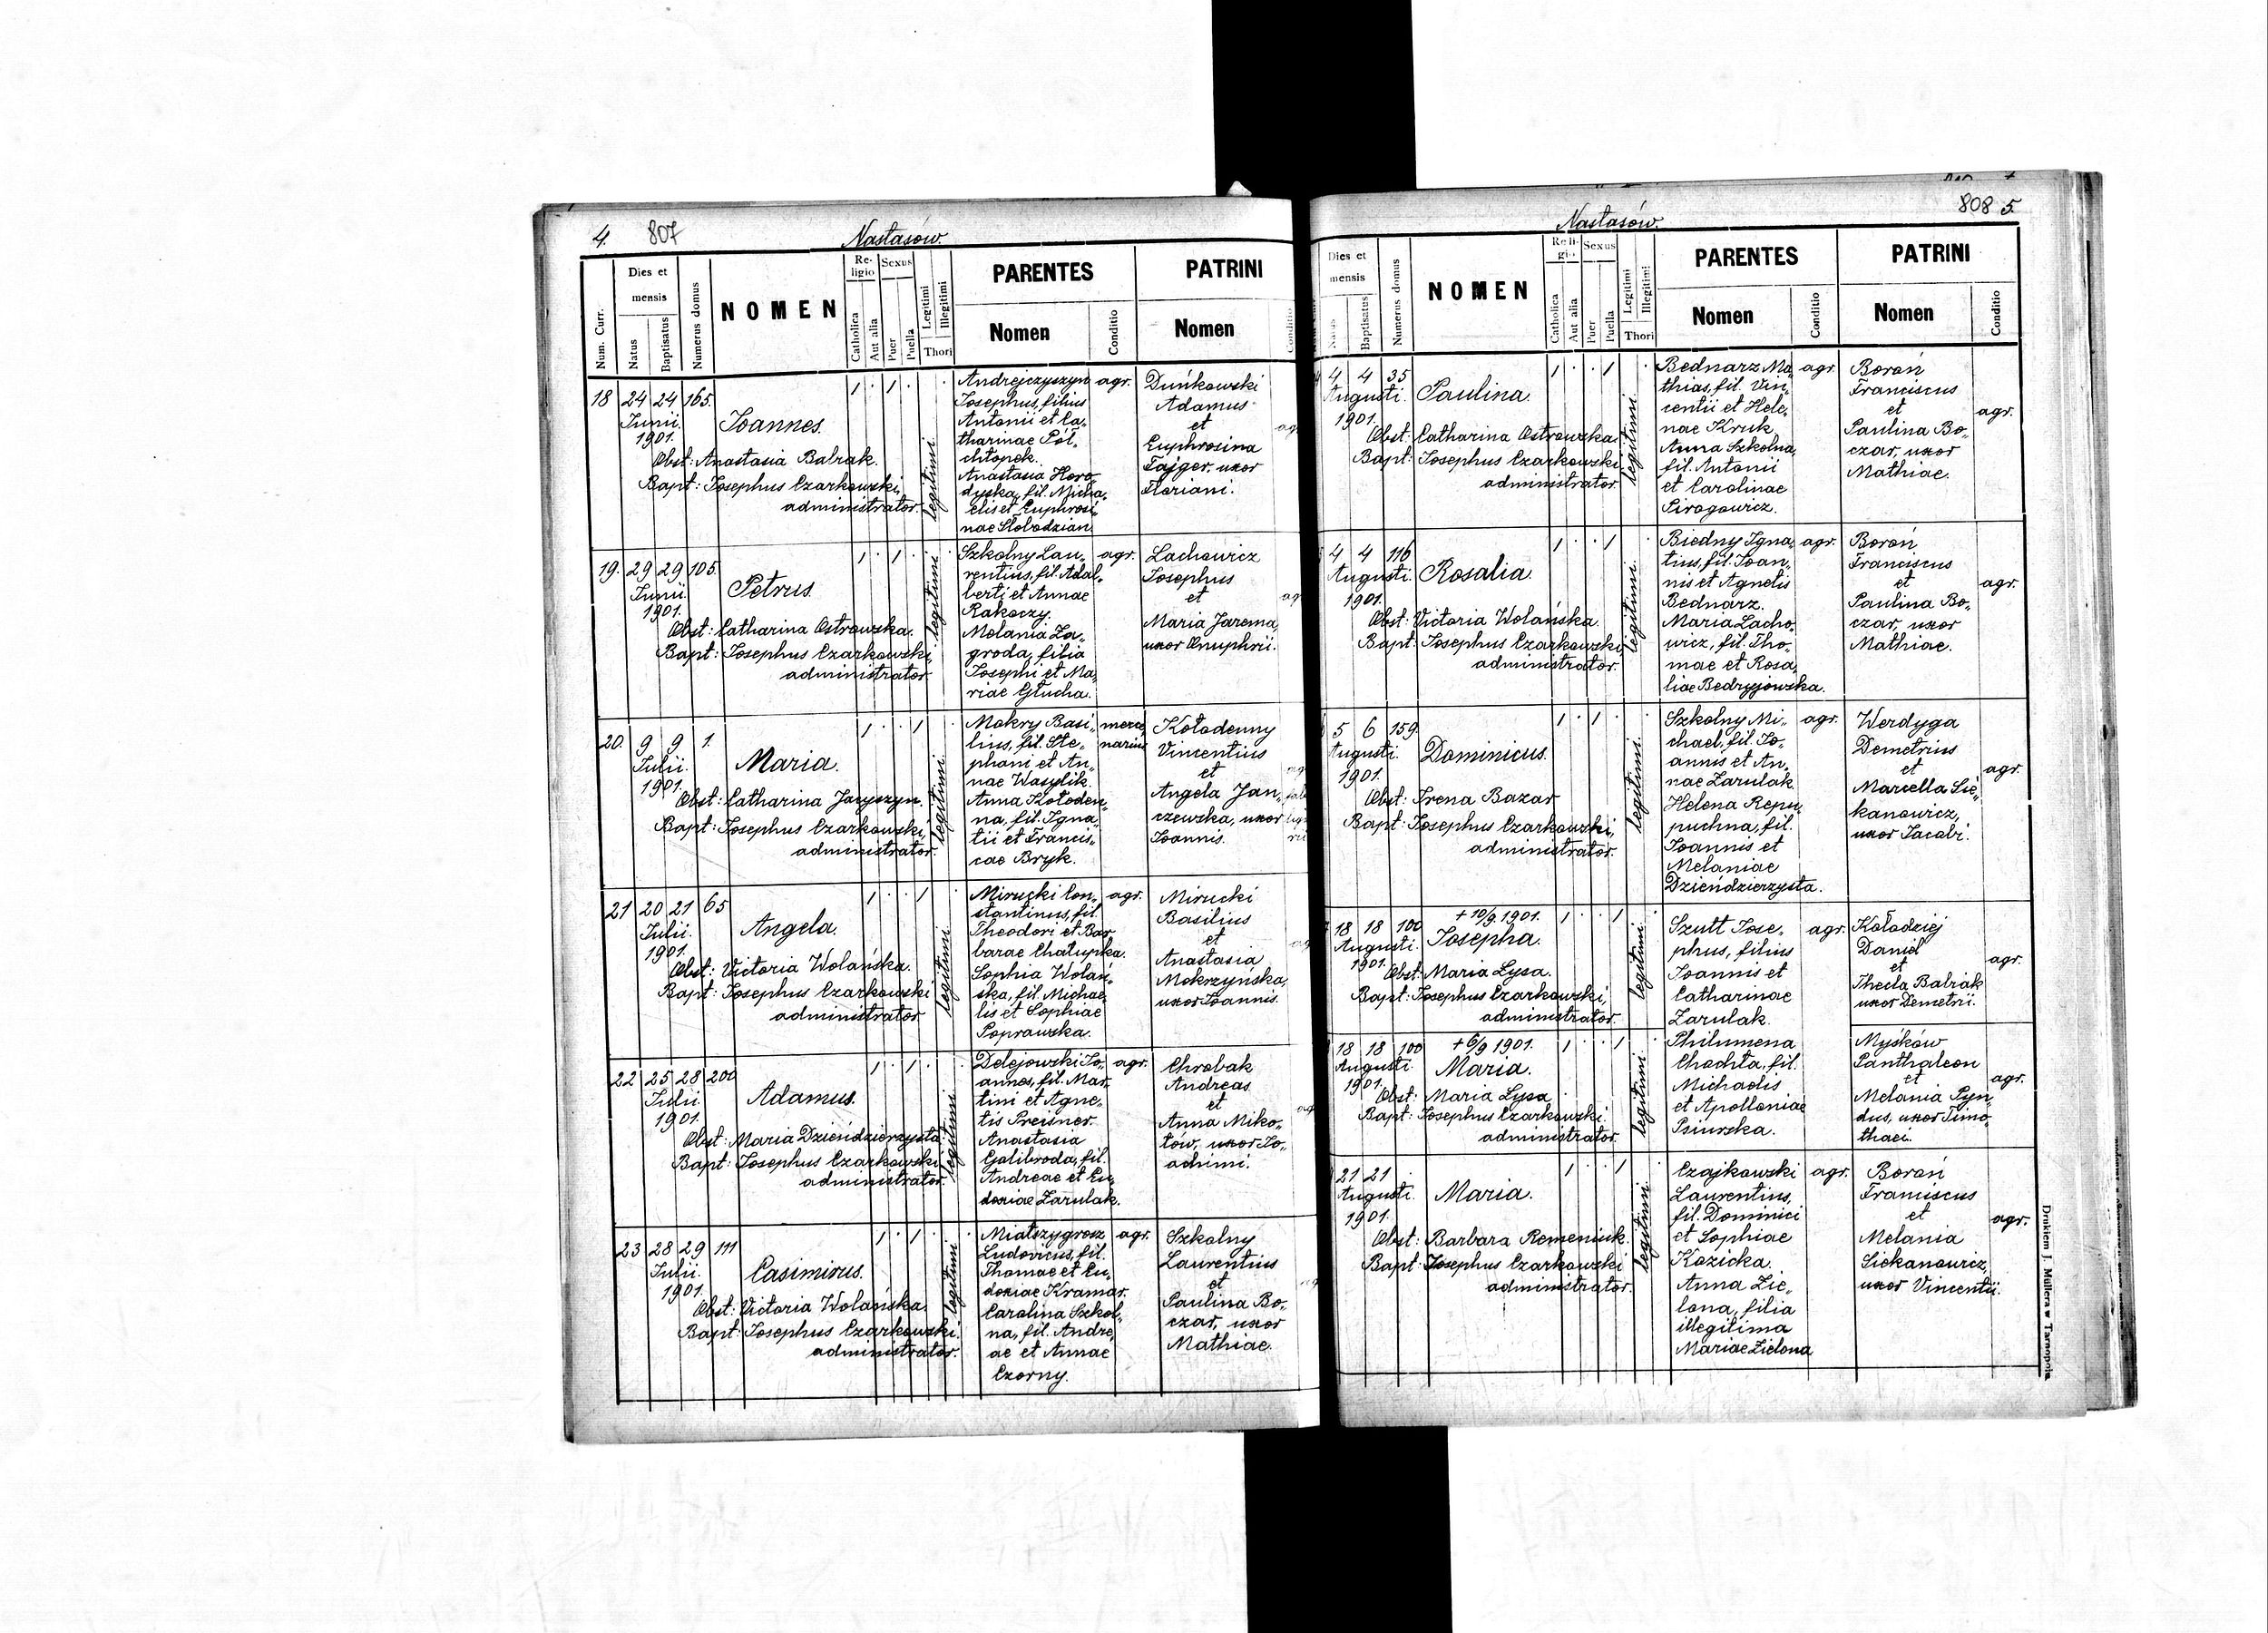 4. 807 Nastasów.
Num. Curr. Dies et mensis Natus Baptisatus Numerus domus NOMEN Religio Catholica Aut alia Sexus Puer Puella Legitimi Illegitimi Thori PARENTES Nomen Conditio PATRINI Nomen Conditio
18 24 24 165.
Junii.
1901.
Joannes.
Obst: Anastasia Babrak.
Bapt: Josephus Czarkowski,
administrator.
legitimi
Andrejczyszyn agr.
Josephus, filius
Antonii et Ca„
tharinae Pół„
chłopek.
Anastasia Horo„
dyska, fil. Micha„
elis et Euphrosi„
nae Słobodzian
Duńkowski
Adamus
et
Euphrosina
Fajger, uxor
Floriani.
19. 29 29 105.
Junii.
1901.
Petrus.
Obst: Catharina Ostrowska.
Bapt: Josephus Czarkowski,
administrator.
legitimi
Szkolny Lau„ agr.
rentius, fil. Adal„
berti et Annae
Rakoczy.
Melania Za„
groda, filia
Josephi et Ma„
riae Głucha.
Lachowicz
Josephus
et
Maria Jarema,
uxor Onuphrii.
20. 9 9 1.
Julii.
1901.
Maria.
Obst: Catharina Jaryszyn.
Bapt: Josephus Czarkowski,
administrator.
legitimi
Mokry Basi„ merce„
lius, fil. Ste„ narius
phani et An„
nae Wasylik.
Anna Kołoden„
na, fil. Igna„
tii et Francis„
cae Bryk.
Kołodenny
Vincentius
et
Angela Jan„
czewska, uxor
Joannis.
21 20 21 65
Julii.
1901.
Angela.
Obst: Victoria Wolańska.
Bapt: Josephus Czarkowski
administrator.
legitimi
Mirucki Con„ agr.
stantinus, fil.
Theodori et Bar„
barae Chałupka.
Sophia Wolań„
ska, fil. Michae„
lis et Sophiae
Poprawska.
Mirucki
Basilius
et
Anastasia
Mokrzyńska,
uxor Joannis.
22 25 28 200
Julii.
1901.
Adamus.
Obst: Maria Dzieńdzierzysta
Bapt: Josephus Czarkowski,
administrator.
legitimi
Delejowski Jo„ agr.
annes, fil. Mar„
tini et Agne„
tis Preisner.
Anastasia
Golibroda, fil.
Andreae et Eu„
doxiae Zarulak.
Chrobak
Andreas
et
Anna Miko„
łów, uxor Jo„
achimi.
23 28 29 111
Julii.
1901.
Casimirus.
Obst: Victoria Wolańska.
Bapt: Josephus Czarkowski.
administrator.
legitimi
Miałszygrosz agr.
Ludovicus, fil.
Thomae et Eu„
doxiae Kramar.
Carolina Szkol„
na, fil. Andre„
ae et Annae
Czorny.
Szkolny
Laurentius
et
Paulina Bo„
czar, uxor
Mathiae.
Nastasów. 808 5.
Dies et mensis Natus Baptisatus Numerus domus NOMEN Religio Catholica Aut alia Sexus Puer Puella Legitimi Illegitimi Thori PARENTES Nomen Conditio PATRINI Nomen Conditio
4 4 35
Augusti.
1901.
Paulina.
Obst: Catharina Ostrowska.
Bapt: Josephus Czarkowski,
administrator.
legitimi
Bednarz Ma„ agr.
thias, fil. Vin„
centii et Hele„
nae Kruk
Anna Szkolna,
fil. Antonii
et Carolinae
Pirogowicz.
Boroń
Franciscus
et agr.
Paulina Bo„
czar, uxor
Mathiae.
4 4 116
Augusti.
1901.
Rosalia.
Obst: Victoria Wolańska.
Bapt: Josephus Czarkowski,
administrator.
legitimi
Biedny Igna„ agr.
tius, fil. Joan„
nis et Agnetis
Bednarz.
Maria Lacho„
wicz, fil. Tho„
mae et Rosa„
liae Bedryjowska.
Boroń
Franciscus
et agr.
Paulina Bo„
czar, uxor
Mathiae.
5 6 159.
Augusti.
1901.
Dominicus.
Obst: Irena Bazar
Bapt: Josephus Czarkowski,
administrator.
legitimi
Szkolny Mi„ agr.
chael, fil. Jo„
annis et An„
nae Zarulak.
Helena Repu„
puchna, fil.
Joannis et
Melaniae
Dzieńdzierzysta.
Werdyga
Demetrius
et agr.
Marcella Sie„
kanowicz,
uxor Jacobi.
18 18 100
Augusti.
1901.
+ 10/9. 1901.
Josepha.
Obst: Maria Lysa.
Bapt: Josephus Czarkowski,
administrator.
legitimi
Szutt Jose„ agr.
phus, filius
Joannis et
Catharinae
Zarulak.
Kołodziej
Daniel
et agr.
Thecla Babrak
uxor Demetrii.
18 18 100
Augusti
1901.
+ 6/9 1901.
Maria.
Obst: Maria Lysa
Bapt: Josephus Czarkowski
administrator.
legitimi
Philumena
Chochła, fil.
Michaelis
et Apolloniae
Psiurska.
Myśków
Panthaleon
et agr.
Melania Pyn„
dus, uxor Timo„
thaei.
21 21
Augusti.
1901.
Maria.
Obst: Barbara Remeniuk.
Bapt: Josephus Czarkowski
administrator.
legitimi
Czajkowski agr.
Laurentius,
fil. Dominici
et Sophiae
Kozicka.
Anna Zie„
lona, filia
illegitima
Mariae Zielona
Boroń
Franciscus
et agr.
Melania
Siekanowicz,
uxor Vincentii.
Drukiem J. Müllera w Tarnopolu